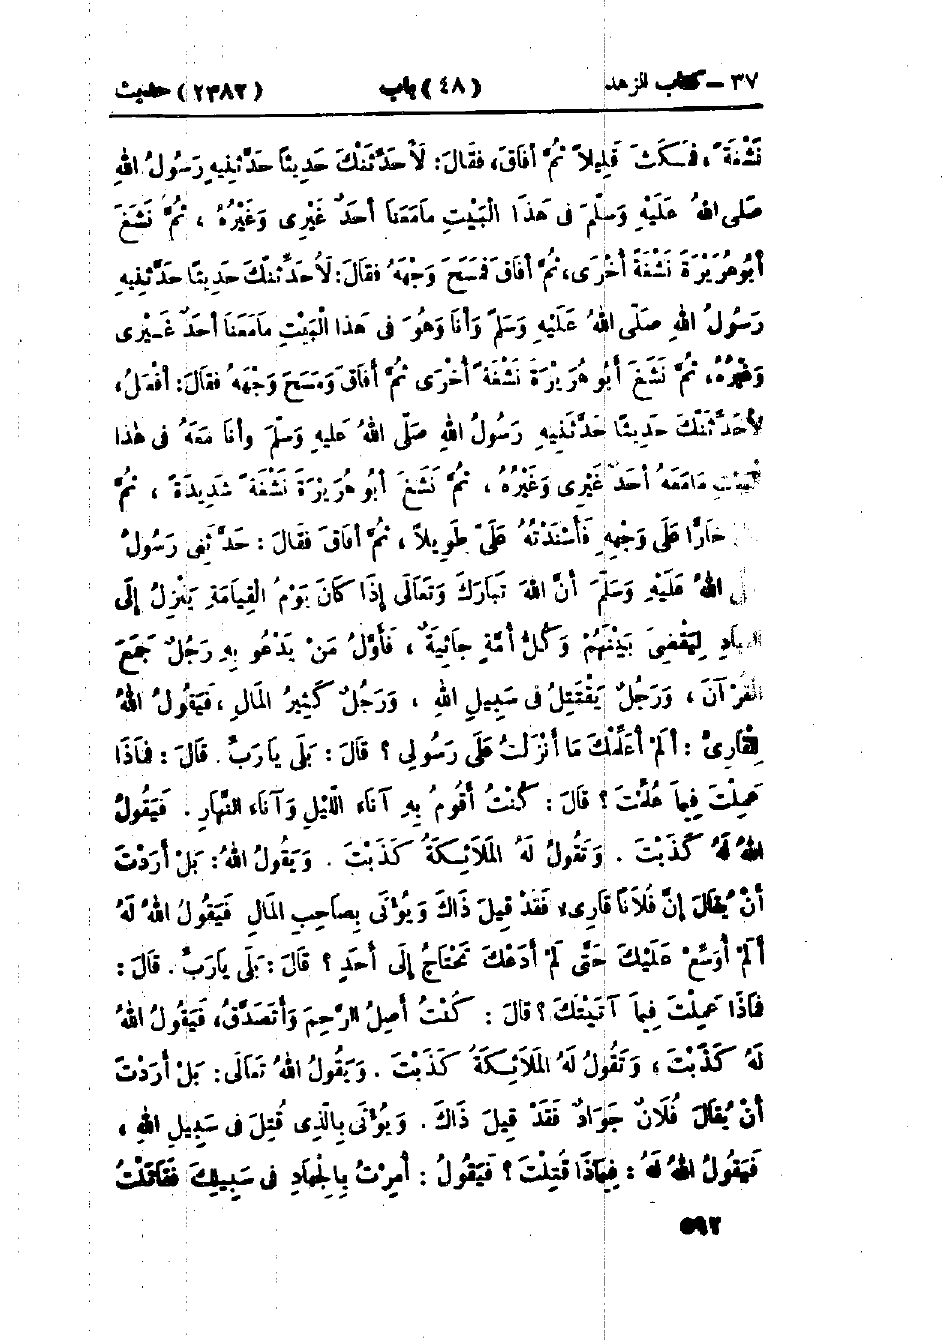 ٣٧ – كتاب الزهد (٤٨) باب (٢٣٨٢) حديث
نَشْغَةً، فَمَكَثَ قَلِيلاً ثُمَّ أَفَاقَ، فقَالَ: لَأُحَدِّثَنَّكَ حَدِيثًا حَدَّثَنِيهِ رَسُولُ اللهِ
صَلى اللهُ عَلَيْهِ وَسَلَّمَ فى هَذَا الْبَيْتِ مامَعَنَا أحَدٌ غَيْرِى وَغَيْرُهُ، ثُمَّ نَشَغَ
أبُو هُرَيْرَةَ نَشْغَةً أُخْرَى، ثُمَّ أفَاقَ فَمَسَحَ وَجْهَهُ فقَالَ: لَأُحَدِّثَنَّكَ حَدِيثًا حَدَّثَنِيهِ
رَسُولُ اللهِ صَلَّى اللهُ عَلَيْهِ وَسَلَّمَ وَأنَا وَهُوَ فى هَذا الْبَيْتِ مامَعَنَا أحَدٌ غَيْرِى
وَغَيْرُهُ، ثُمَّ نَشَغَ أَبُو هُرَيْرَةَ نَشْغَةً أُخْرَى ثُمَّ أَفَاقَ وَمَسَحَ وَجْهَهُ فقَالَ: أفْعَلُ،
لأُحَدِّثَنَّكَ حَدِيثًا حَدَّثَنِيهِ رَسُولُ اللهِ صَلَّى اللهُ عَليهِ وَسَلَّمَ وأنَا مَعَهُ فى هٰذا
الْبَيْتِ مَامَعَهُ أحَدٌ غَيْرِى وَغَيْرُهُ، ثُمَّ نَشَغَ أبُو هُرَيْرَةَ نَشْغَةً شَدِيدَةً، ثُمَّ
خَارًّا عَلَى وَجْهِهِ فَأَسْنَدْتُهُ عَلَىَّ طَوِيلاً، ثُمَّ أفَاقَ فَقَالَ: حَدَّثَنِى رَسُولُ
اللهُ عَلَيْهِ وَسَلَّمَ أنَّ اللهَ تَبَارَكَ وَتَعَالَى إِذَا كَانَ يَوْمُ الْقِيامَةِ يَنْزِلُ إِلَى
الْعِبادِ لِيَقْضِىَ بَيْنَهُمْ وَكُلُّ أُمَّةٍ جاثِيَةٌ، فَأَوَّلُ مَنْ يَدْعُو بِهِ رَجُلٌ جَمَعَ
الْقُرْآنَ، وَرَجُلٌ يَقْتَتِلُ فى سَبِيلِ اللهِ، وَرَجُلٌ كَثِيرُ المَالِ، فَيَقُولُ اللهُ
لِلْقَارِئِ: أَلَمْ أُعَلِّمْكَ مَا أَنْزَلْتُ عَلَى رَسُولِى؟ قالَ: بَلَى يارَبِّ. قالَ: فَمَاذَا
عَمِلْتَ فِيمَا عُلِّمْتَ؟ قالَ: كُنْتُ أقُومُ بِهِ آنَاءَ اللَّيْلِ وَآناءَ النَّهَارِ. فَيَقُولُ
اللهُ لَهُ كَذَبْتَ. وَتَقُولُ لَهُ الْمَلَائِكَةُ كَذَبْتَ. وَيَقُولُ اللهُ: بَلْ أَرَدْتَ
أنْ يُقالَ إنَّ فُلَانًا قارِىءٌ فَقَدْ قِيلَ ذَاكَ وَيُؤْتَى بِصَاحِبِ المَالِ فَيَقُولُ اللهُ لَهُ
أَلَمْ أُوَسِّعْ عَلَيْكَ حَتَّى لَمْ أَدَعْكَ تَحْتَاجُ إلَى أَحَدٍ؟ قَالَ: بَلَى يارَبِّ. قالَ:
فَمَاذَا عَمِلْتَ فِيمَا آتَيْتُكَ؟ قالَ: كُنْتُ أَصِلُ الرَّحِمَ وَأَتَصَدَّقُ، فَيَقُولُ اللهُ
لَهُ كَذَبْتَ، وَتَقُولُ لَهُ الْمَلَائِكَةُ كَذَبْتَ. وَيَقُولُ اللهُ تَعَالَى: بَلْ أرَدْتَ
أَنْ يُقالَ فُلَانٌ جَوَادٌ فَقَدْ قِيلَ ذَاكَ. وَيُؤْتَى بِالَّذِى قُتِلَ فى سَبِيلِ اللهِ،
فَيَقُولُ اللهُ لَهُ: فِيمَاذَا قُتِلْتَ؟ فَيَقُولُ: أُمِرْتُ بِالْجِهَادِ فى سَبِيلِكَ فَقَاتَلْتُ
٥٩٢